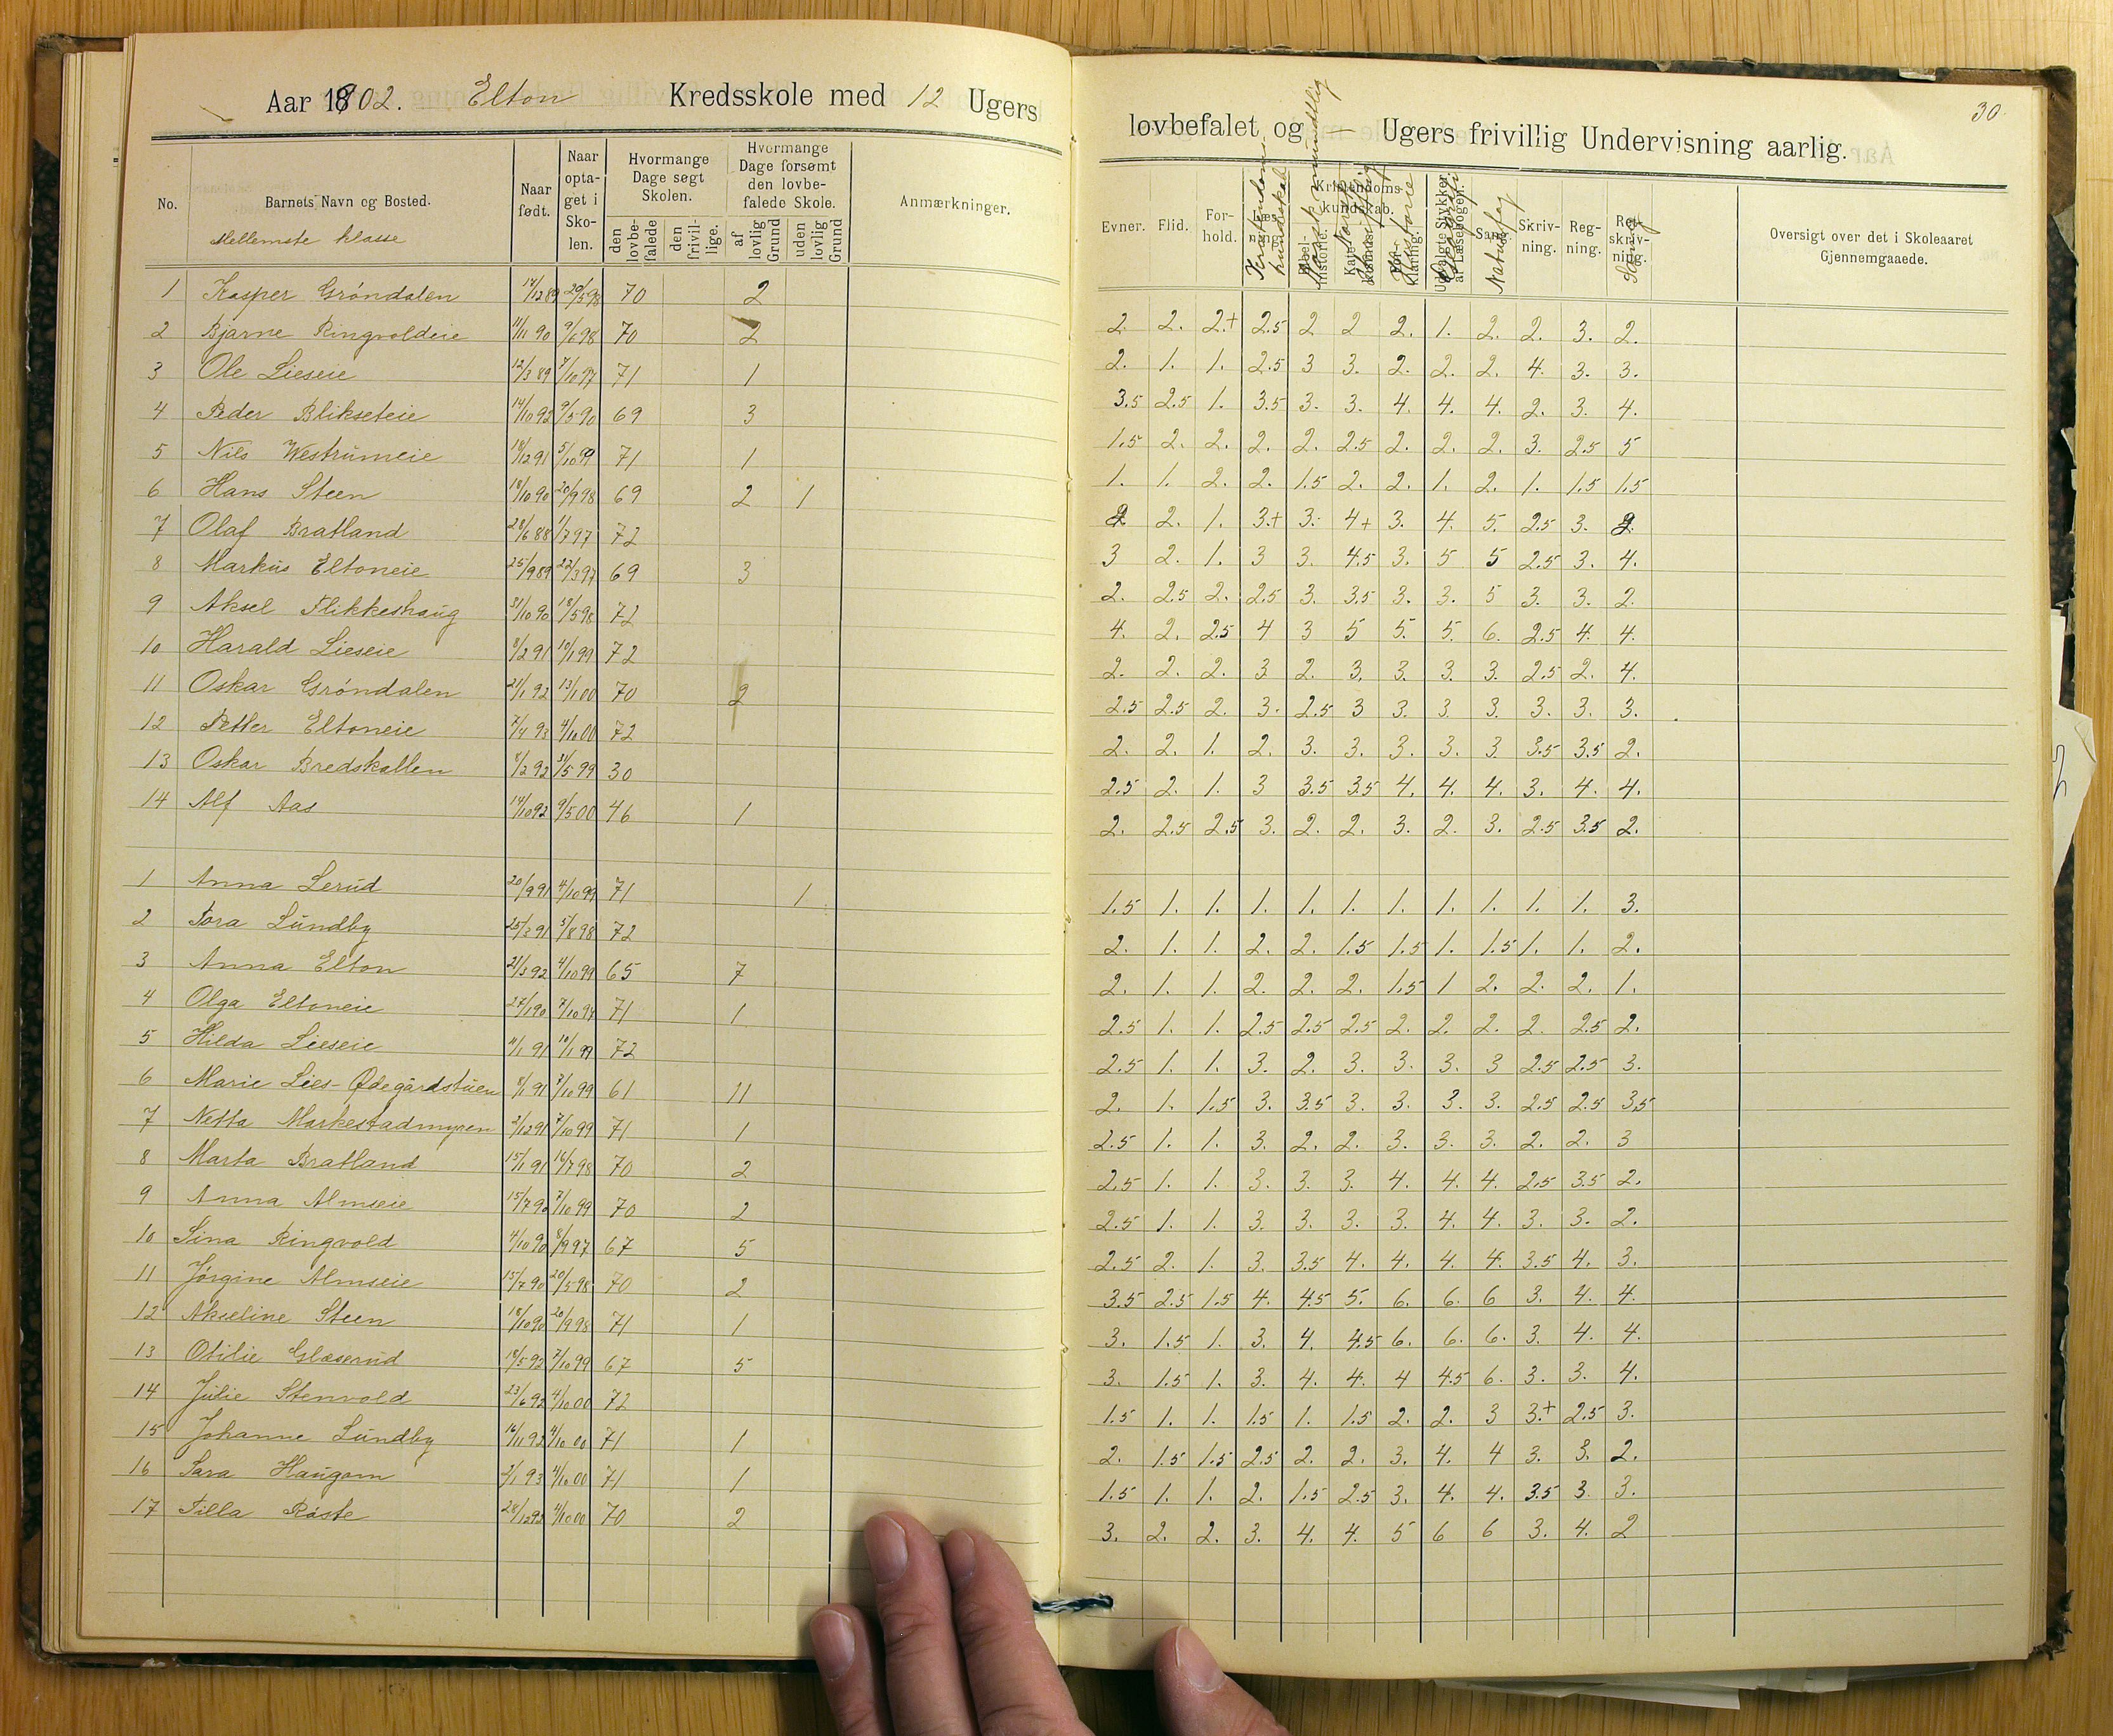 Aar 1902. Elton Kredsskole med 12 Ugers
No. Barnets Navn og Bosted. Naar født. Naar optaget i Skolen. Hvormange Dage søgt Skolen. Hvormange Dage forsømt den lovbefalede Skole. Anmærkninger.
Mellemste klasse den lovbefalede den frivillige. af lovlig Grund uden lovlig Grund
1 Kasper Gröndalen 17/12 89 20/5 98 70 2
2 Bjarne Ringvoldeie 11/11 90 9/6 98 70 2
3 Ole Lieseie 12/3 89 7/10 97 71 1
4 Peder Blikseteie 14/10 92 9/5 90 69 3
5 Nils Westrumeie 18/12 91 5/10 99 71 1
6 Hans Steen 18/10 90 20/9 98 69 2 1
7 Olaf Bratland 28/6 88 1/7 97 72
8 Markus Eltoneie 25/9 89 22/3 97 69 3
9 Aksel Flikkeshaug 31/10 90 18/5 98 72
10 Harald Lieseie 8/2 91 10/1 99 72
11 Oskar Gröndalen 21/1 92 13/1 00 70 2
12 Petter Eltoneie 7/4 93 4/10 00 72
13 Oskar Bredskallen 8/2 92 31/5 99 30
14 Alf Aas 14/10 92 9/5 00 46 1
1 Anna Lerud 20/9 91 4/10 99 71 1
2 Tora Lundby 25/3 91 5/8 98 72
3 Anna Elton 21/3 92 4/10 99 65 7
4 Olga Eltoneie 27/1 90 7/10 97 71 1
5 Hilda Lieseie 11/1 91 10/1 99 72
6 Marie Lies-Ødegårdstuen 8/1 91 7/10 99 61 11
7 Netta Markestadmyren 2/12 91 7/10 99 71 1
8 Marta Bratland 15/1 91 16/7 98 70 2
9 Anna Almseie 15/7 90 7/10 99 70 2
10 Sina Ringvold 4/10 90 8/9 97 67 5
11 Jörgine Almseie 15/7 90 20/5 98 70 2
12 Akseline Steen 18/10 90 20/9 98 71 1
13 Otilie Glæserud 18/5 92 7/10 99 67 5
14 Julie Stenvold 23/6 92 4/10 00 72
15 Johanne Lundby 16/11 92 4/10 00 71 1
16 Sara Haugom 2/1 93 4/10 00 71 1
17 Tilla Röste 28/12 92 4/10 00 70 2
30.
lovbefalet og — Ugers frivillig Undervisning aarlig.
Evner. Flid. Forhold. Læsning. Kristendomskundskab. Udvalgte Stykker af Læsebogen. Sang. Skrivning. Regning. Retskrivning. Oversigt over det i Skoleaaret Gjennemgaaede.
Kristendomskundskab Norsk mundtlig Norsk skriftlig Historie Geografi Naturfag Sang
Bibelhistorie. Katekismus. Forklaring.
2. 2. 2.+ 2.5 2 2 2. 1. 2. 2. 3. 2.
2. 1. 1. 2.5 3 3. 2. 2. 2. 4. 3. 3.
3.5 2.5 1. 3.5 3. 3. 4. 4. 4. 2. 3. 4.
1.5 2. 2. 2. 2. 2.5 2. 2. 2. 3. 2.5 5
1. 1. 2. 2. 1.5 2. 2. 1. 2. 1. 1.5 1.5
2. 2. 1. 3+ 3. 4+ 3. 4. 5. 2.5 3. 2.
3 2. 1. 3 3. 4.5 3. 5 5 2.5 3. 4.
2. 2.5 2. 2.5 3. 3.5 3. 3. 5 3. 3. 2.
4. 2. 2.5 4 3 5 5. 5. 6. 2.5 4. 4.
2. 2. 2. 3 2. 3. 3. 3. 3. 2.5 2. 4.
2.5 2.5 2. 3. 2.5 3 3. 3. 3. 3. 3. 3.
2. 2. 1. 2. 3. 3. 3. 3. 3 3.5 3.5 2.
2.5 2. 1. 3 3.5 3.5 4. 4. 4. 3. 4. 4.
2. 2.5 2.5 3. 2. 2. 3. 2. 3. 2.5 3.5 2.
1.5 1. 1. 1. 1. 1. 1. 1. 1. 1. 1. 3.
2. 1. 1. 2. 2. 1.5 1.5 1. 1.5 1. 1. 2.
2. 1. 1. 2. 2. 2. 1.5 1 2. 2. 2. 1.
2.5 1. 1. 2.5 2.5 2.5 2. 2. 2. 2. 2.5 2.
2.5 1. 1. 3. 2. 3. 3. 3. 3 2.5 2.5 3.
2. 1. 1.5 3. 3.5 3. 3. 3. 3. 2.5 2.5 3.5
2.5 1. 1. 3. 2. 2. 3. 3. 3. 2. 2. 3
2.5 1. 1. 3. 3. 3. 4. 4. 4. 2.5 3.5 2.
2.5 1. 1. 3. 3. 3. 3. 4. 4. 3. 3. 2.
2.5 2. 1. 3. 3.5 4. 4. 4. 4. 3.5 4. 3.
3.5 2.5 1.5 4. 4.5 5. 6. 6. 6 3. 4. 4.
3. 1.5 1. 3. 4. 4.5 6. 6. 6. 3. 4. 4.
3. 1.5 1. 3. 4. 4. 4 4.5 6. 3. 3. 4.
1.5 1. 1. 1.5 1. 1.5 2. 2. 3 3.+ 2.5 3.
2. 1.5 1.5 2.5 2. 2. 3. 4. 4 3. 3. 2.
1.5 1. 1. 2. 1.5 2.5 3. 4. 4. 3.5 3. 3.
3. 2. 2. 3. 4. 4. 5 6 6 3. 4. 2